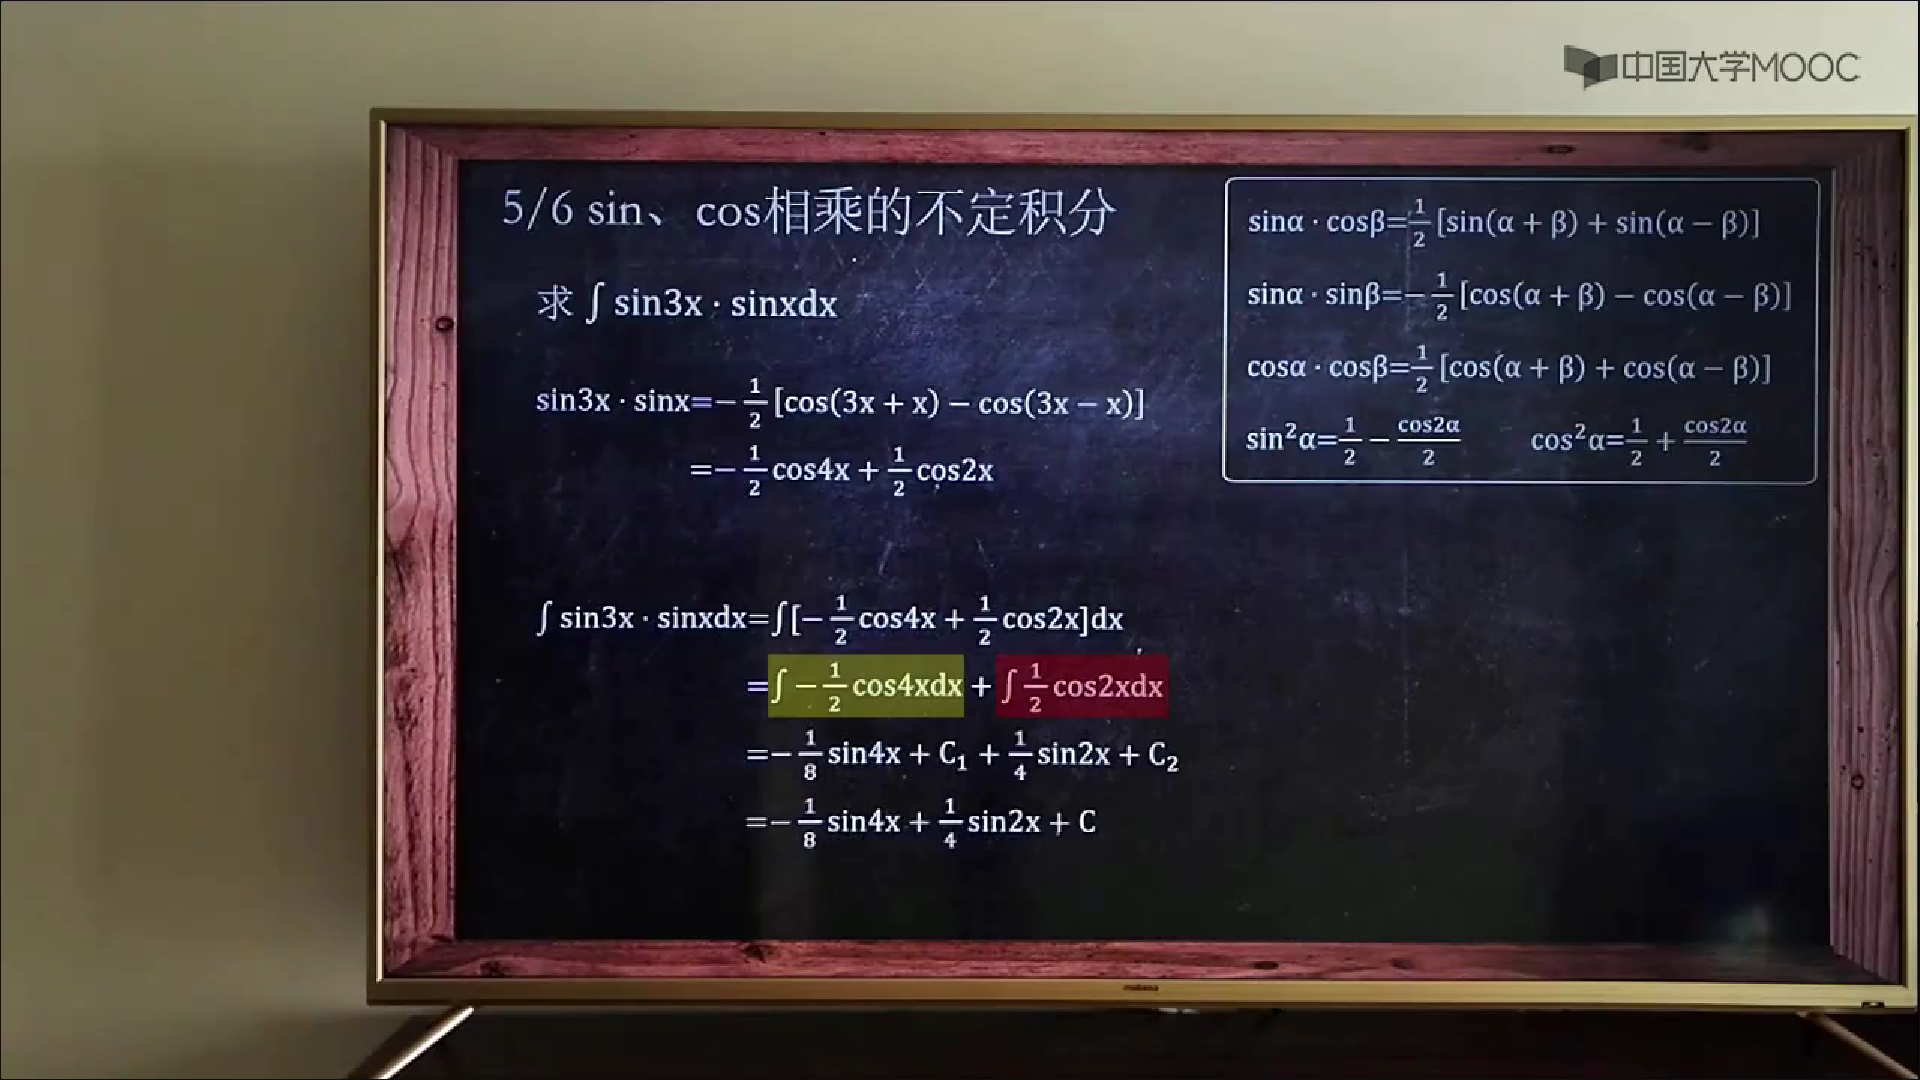 中国大学MOOC
5/6 sin、cos相乘的不定积分
求 ∫ sin3x · sinxdx
sin3x · sinx=−1/2 [cos(3x + x) − cos(3x − x)]
=−1/2 cos4x + 1/2 cos2x
∫ sin3x · sinxdx=∫[−1/2 cos4x + 1/2 cos2x]dx
=∫ −1/2 cos4xdx + ∫ 1/2 cos2xdx
=−1/8 sin4x + C₁ + 1/4 sin2x + C₂
=−1/8 sin4x + 1/4 sin2x + C
sinα · cosβ=1/2 [sin(α + β) + sin(α − β)]
sinα · sinβ=−1/2 [cos(α + β) − cos(α − β)]
cosα · cosβ=1/2 [cos(α + β) + cos(α − β)]
sin²α=1/2 − cos2α/2 cos²α=1/2 + cos2α/2